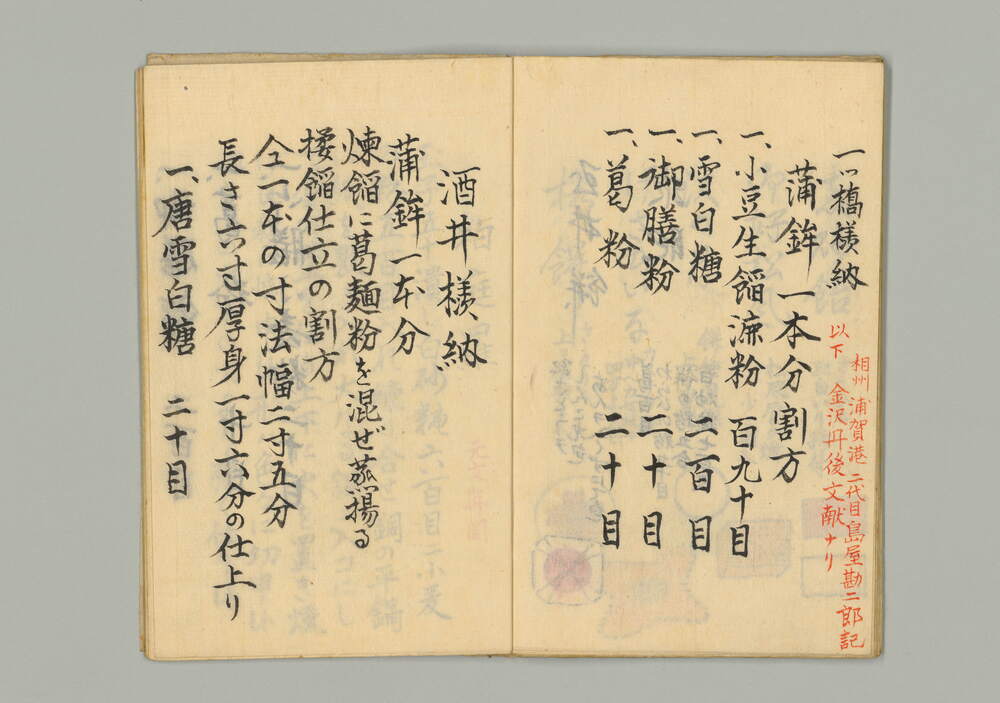 一ッ橋様納
相州浦賀港二代目島屋勘二郎記
以下金沢丹後文献ナリ
蒲鉾一本分割方
一、小豆生餡漉粉 百九十目
一、雪白糖 二百目
一、御膳粉 二十目
一、葛粉 二十目
酒井様納
蒲鉾一本分
煉餡に葛麺粉を混ぜ蒸揚る
様餡仕立の割方
仝一本の寸法幅二寸五分
長さ六寸厚身一寸六分の仕上り
一、唐雪白糖 二十目